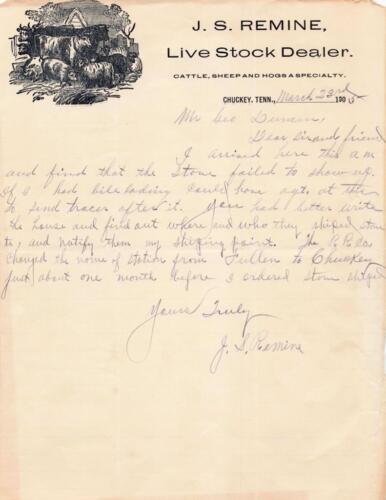 J. S. REMINE,
Live Stock Dealer.
CATTLE, SHEEP AND HOGS A SPECIALTY.
CHUCKEY, TENN., March 23rd 190
Mr Geo Duncan,
Dear sir and friend
I arrived here this am
and find that the Stove failed to show up.
If I had bile lading could have agt, at
to send tracer after it. You had better write
the house and find out where and who they shiped stove
to, and notify them my shiping point. The R.R.Co.
changed the name of station from Fullen to Chuckey
just about one month before I ordered stove shiped
Yours Truly
J. S. Remine